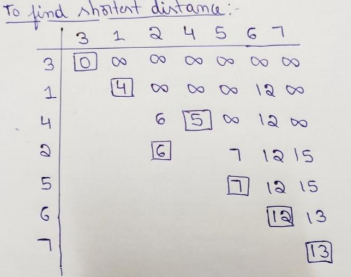 To find shortest distance:-
3 1 2 4 5 6 7
3 0 ∞ ∞ ∞ ∞ ∞ ∞
1 4 ∞ ∞ ∞ 12 ∞
4 6 5 ∞ 12 ∞
2 6 7 12 15
5 7 12 15
6 12 13
7 13